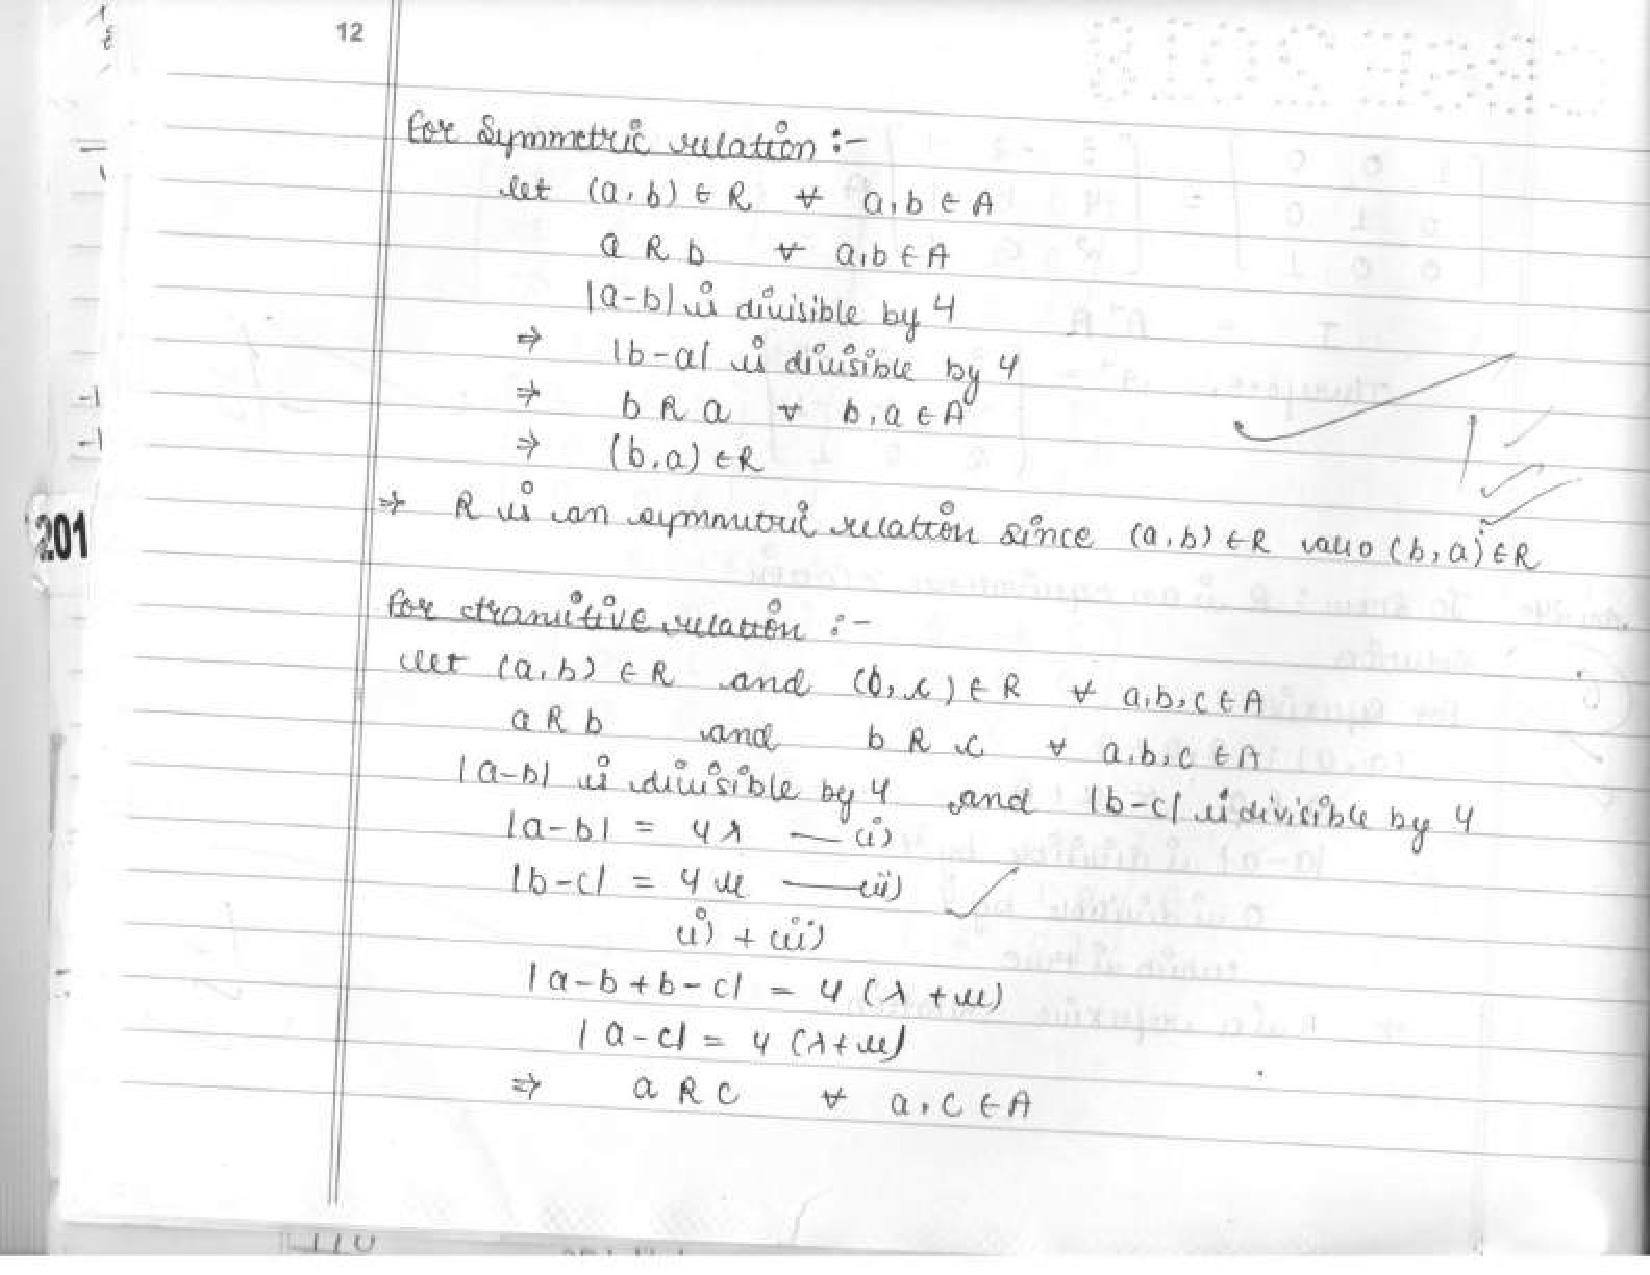 12
for Symmetric relation :-
let (a, b) ∈ R ∀ a, b ∈ A
a R b ∀ a, b ∈ A
|a-b| is divisible by 4
⇒ |b-a| is divisible by 4
⇒ b R a ∀ b, a ∈ A
⇒ (b, a) ∈ R
⇒ R is an symmetric relation since (a, b) ∈ R also (b, a) ∈ R
201
for transitive relation :-
let (a, b) ∈ R and (b, c) ∈ R ∀ a, b, c ∈ A
a R b and b R c ∀ a, b, c ∈ A
|a-b| is divisible by 4 and |b-c| is divisible by 4
|a-b| = 4λ — (i)
|b-c| = 4μ — (ii)
(i) + (ii)
|a-b+b-c| = 4(λ+μ)
|a-c| = 4(λ+μ)
⇒ a R c ∀ a, c ∈ A